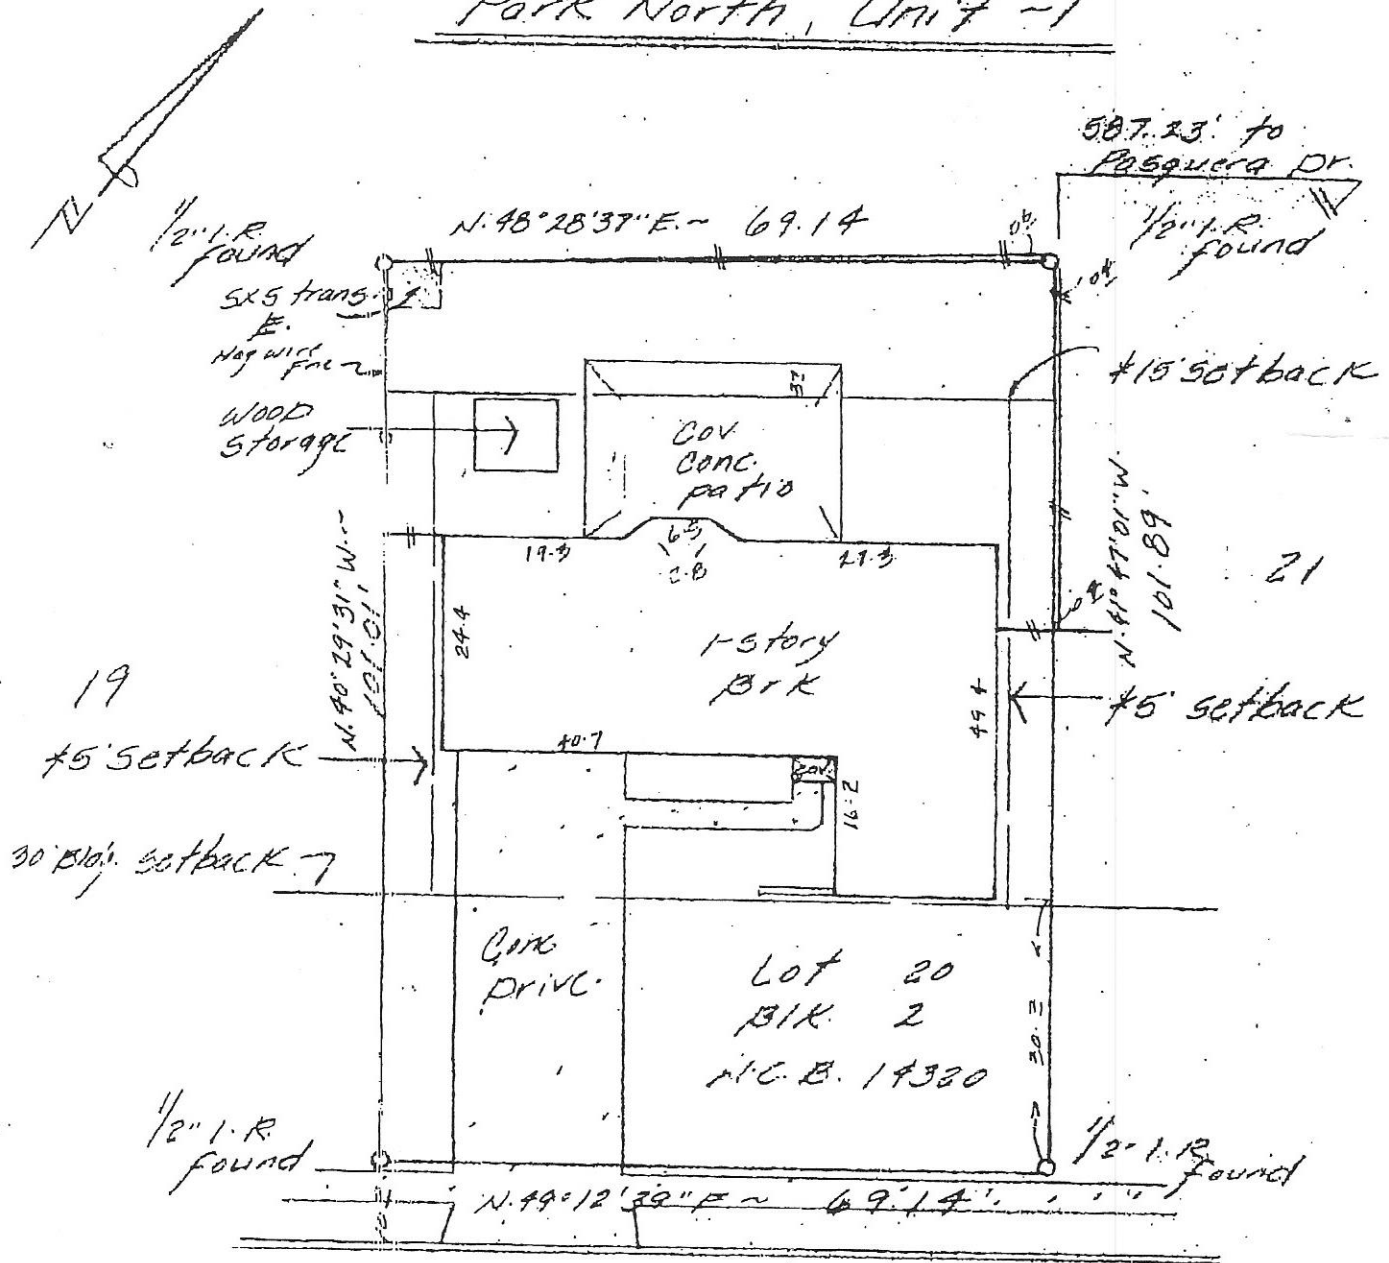 Park North, Unit ~1
587.23' to
Pasquera Dr.
N
1/2" I.R.
found
N.48°28'37"E.~ 69.14
1/2" I.R.
found
5x5 trans.
E.
Hog wire
Fnc ~
#15' setback
Wood
Storage
37
Cov
Conc.
patio
N.40°29'31"W.~
101.01'
N.41°47'01"W.
101.89'
6.5
2.8
19.3
27.3
24.4
21
1-story
Brk
49.4
19
#5' setback
#5' setback
40.7
Cov.
16.2
30' Bldg. setback
Conc
Drive.
Lot 20
Blk. 2
N.C.B. 14320
30.2
1/2" I.R.
found
1/2" I.R.
found
N.49°12'39"E ~ 69.14'